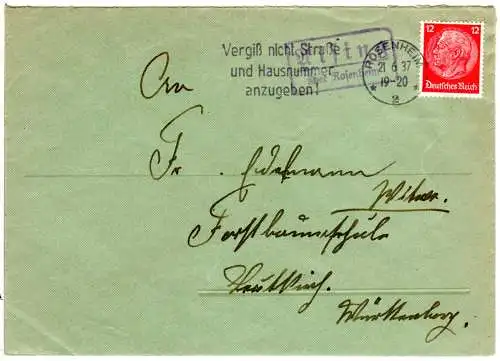 Vergiß nicht Straße
und Hausnummer
anzugeben!
über Rosenheim
ROSENHEIM
21.6.37
19-20
* 2 *
12 12
Deutsches Reich
An
Fr. Edelmann
Witwe.
Forstbaumschule
Leutkirch.
Württemberg.